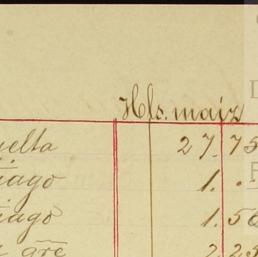 Hls. maiz
uelta 27. 75
iago 1. .
iago 1. 50
gre 2. 25